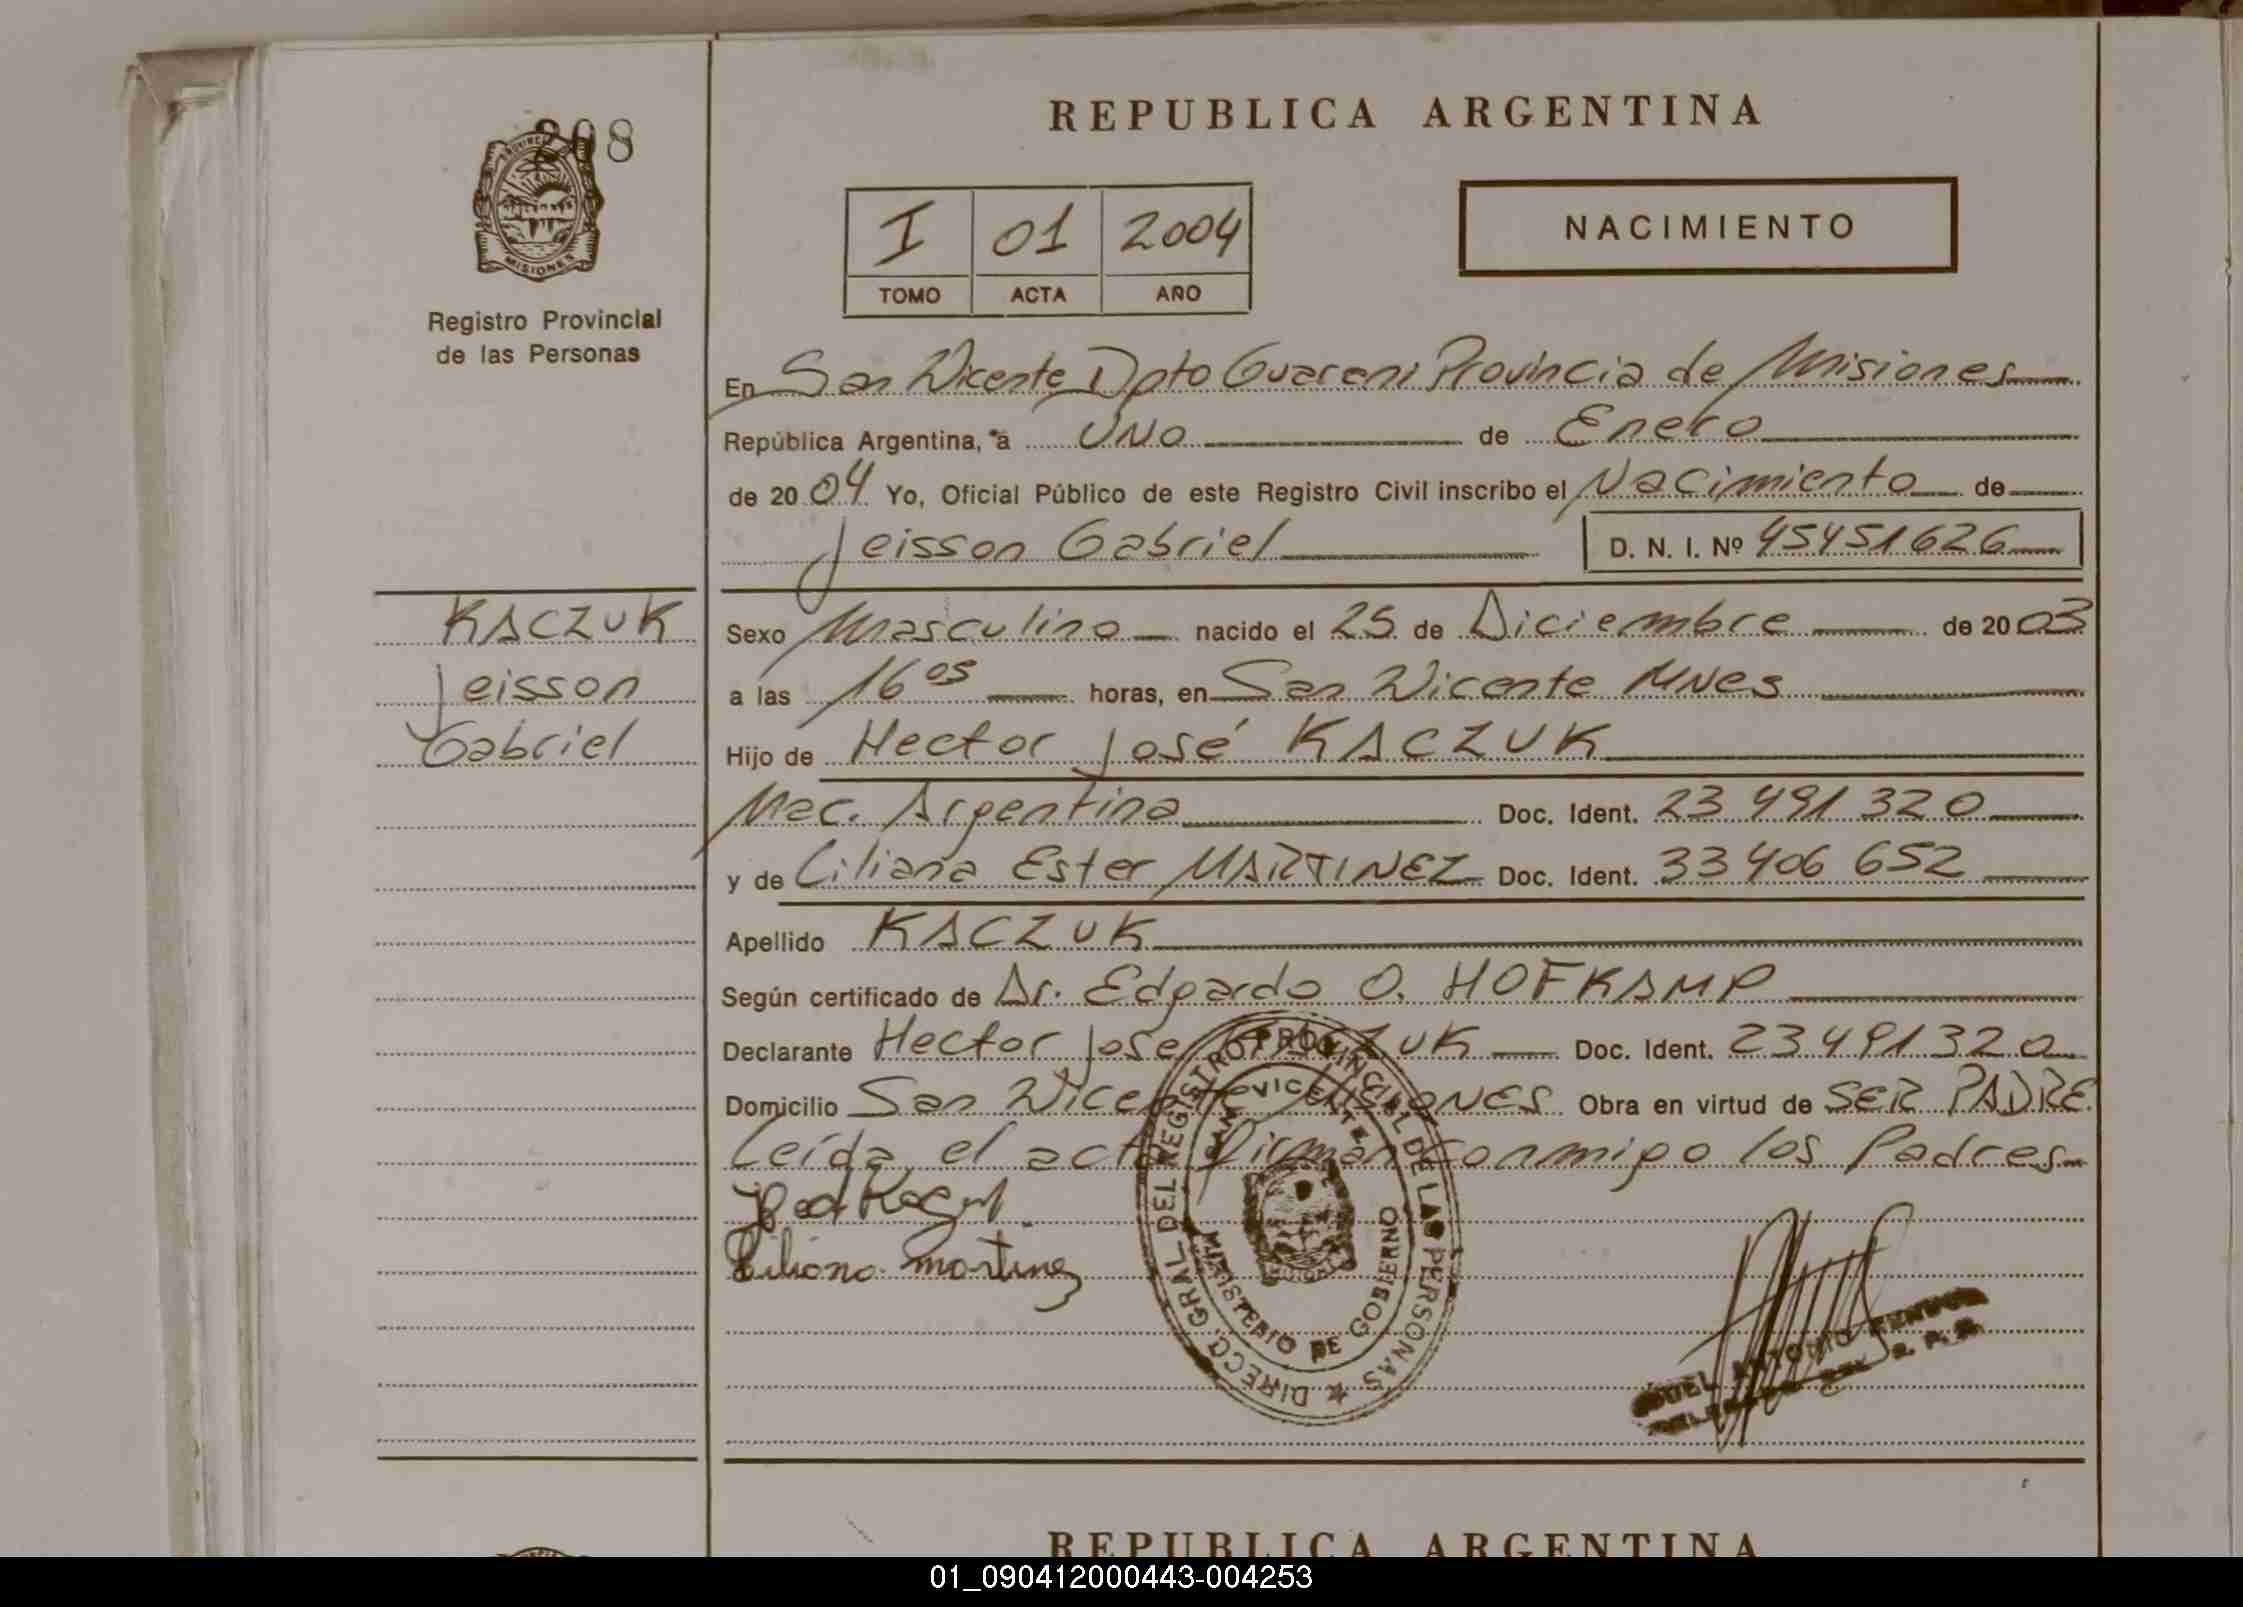 208
PROVINCIA
MISIONES
Registro Provincial
de las Personas
REPUBLICA ARGENTINA
I 01 2004
TOMO ACTA AÑO
NACIMIENTO
En San Vicente Dpto Guarani Provincia de Misiones
República Argentina, a UNO de Enero
de 2004 Yo, Oficial Público de este Registro Civil inscribo el Nacimiento de
Jeisson Gabriel D. N. I. Nº 45451626
KACZUK
Jeisson
Gabriel
Sexo Masculino nacido el 25 de Diciembre de 2003
a las 16 05 horas, en San Vicente Mnes
Hijo de Hector José KACZUK
Nac. Argentina Doc. Ident. 23 491 320
y de Liliana Ester MARTINEZ Doc. Ident. 33 406 652
Apellido KACZUK
Según certificado de Dr. Edgardo O. HOFKAMP
Declarante Hector Jose KACZUK Doc. Ident. 23491320
Domicilio San Vicente Misiones Obra en virtud de SER PADRE
Leída el acta firman conmigo los Padres
Liliana martinez
DIRECC. GRAL DEL REGISTRO PROVINCIAL DE LAS PERSONAS
SAN VICENTE
MINISTERIO DE GOBIERNO
ANTONIO
REPUBLICA ARGENTINA
01_090412000443-004253